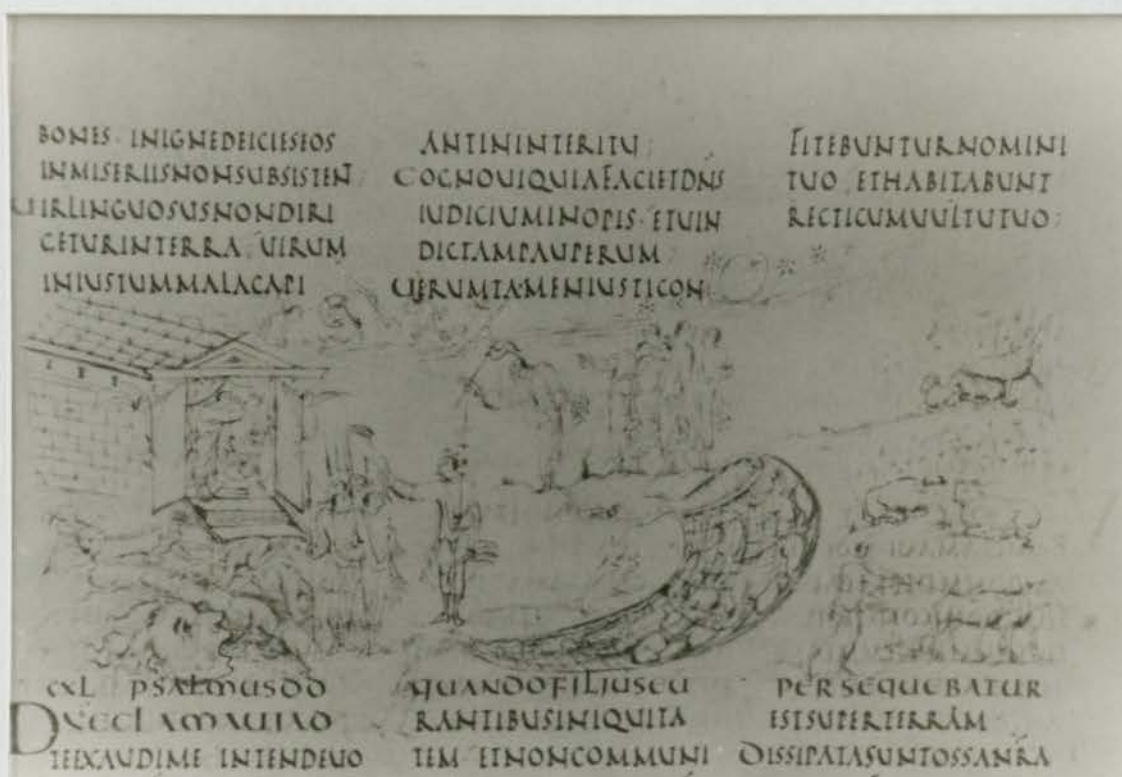 BONES INIGNEDEICIESEOS
INMISERIISNONSUBSISTEN
UIRLINGUOSUSNONDIRI
CETURINTERRA UIRUM
INIUSTUMMALACAPI
ANTININTERITU:
COGNOUIQUIAFACIETDNS
IUDICIUMINOPIS ETUIN
DICTAMPAUPERUM
UERUMTAMENIUSTICON
FITEBUNTURNOMINI
TUO ETHABITABUNT
RECTICUMUULTUTUO:
CXL PSALMUSDD QUANDOFILIUSEU PERSEQUEBATUR
DNECLAMAUIAD
TEEXAUDIME INTENDEUO
RANTIBUSINIQUITA
TEM ETNONCOMMUNI
ESTSUPERTERRAM
DISSIPATASUNTOSSANRA